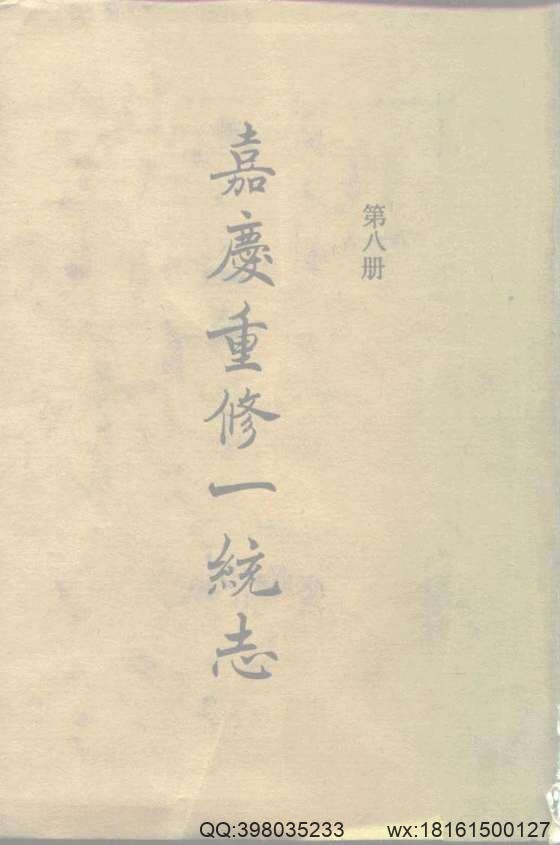 第八册
嘉慶重修一統志
QQ:398035233 wx:18161500127